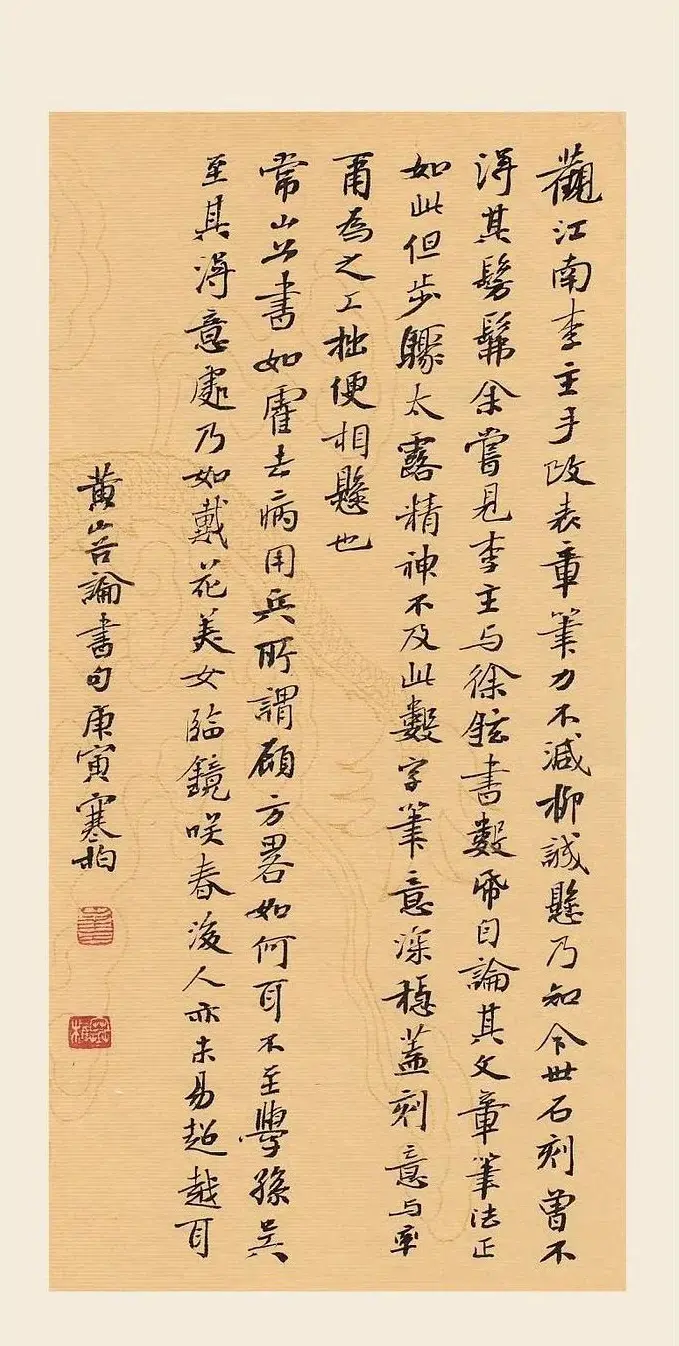 觀江南李主手改表章筆力不減柳誠懸乃知今世石刻曾不
得其髣髴余嘗見李主與徐鉉書數紙自論其文章筆法正
如此但步驟太露精神不及此數字筆意深穩蓋刻意與率
爾為之工拙便相懸也
常山公書如霍去病用兵所謂顧方畧如何耳不至學孫吳
至其得意處乃如戴花美女臨鏡咲春後人亦未易超越耳
黃山谷論書句庚寅寒柏